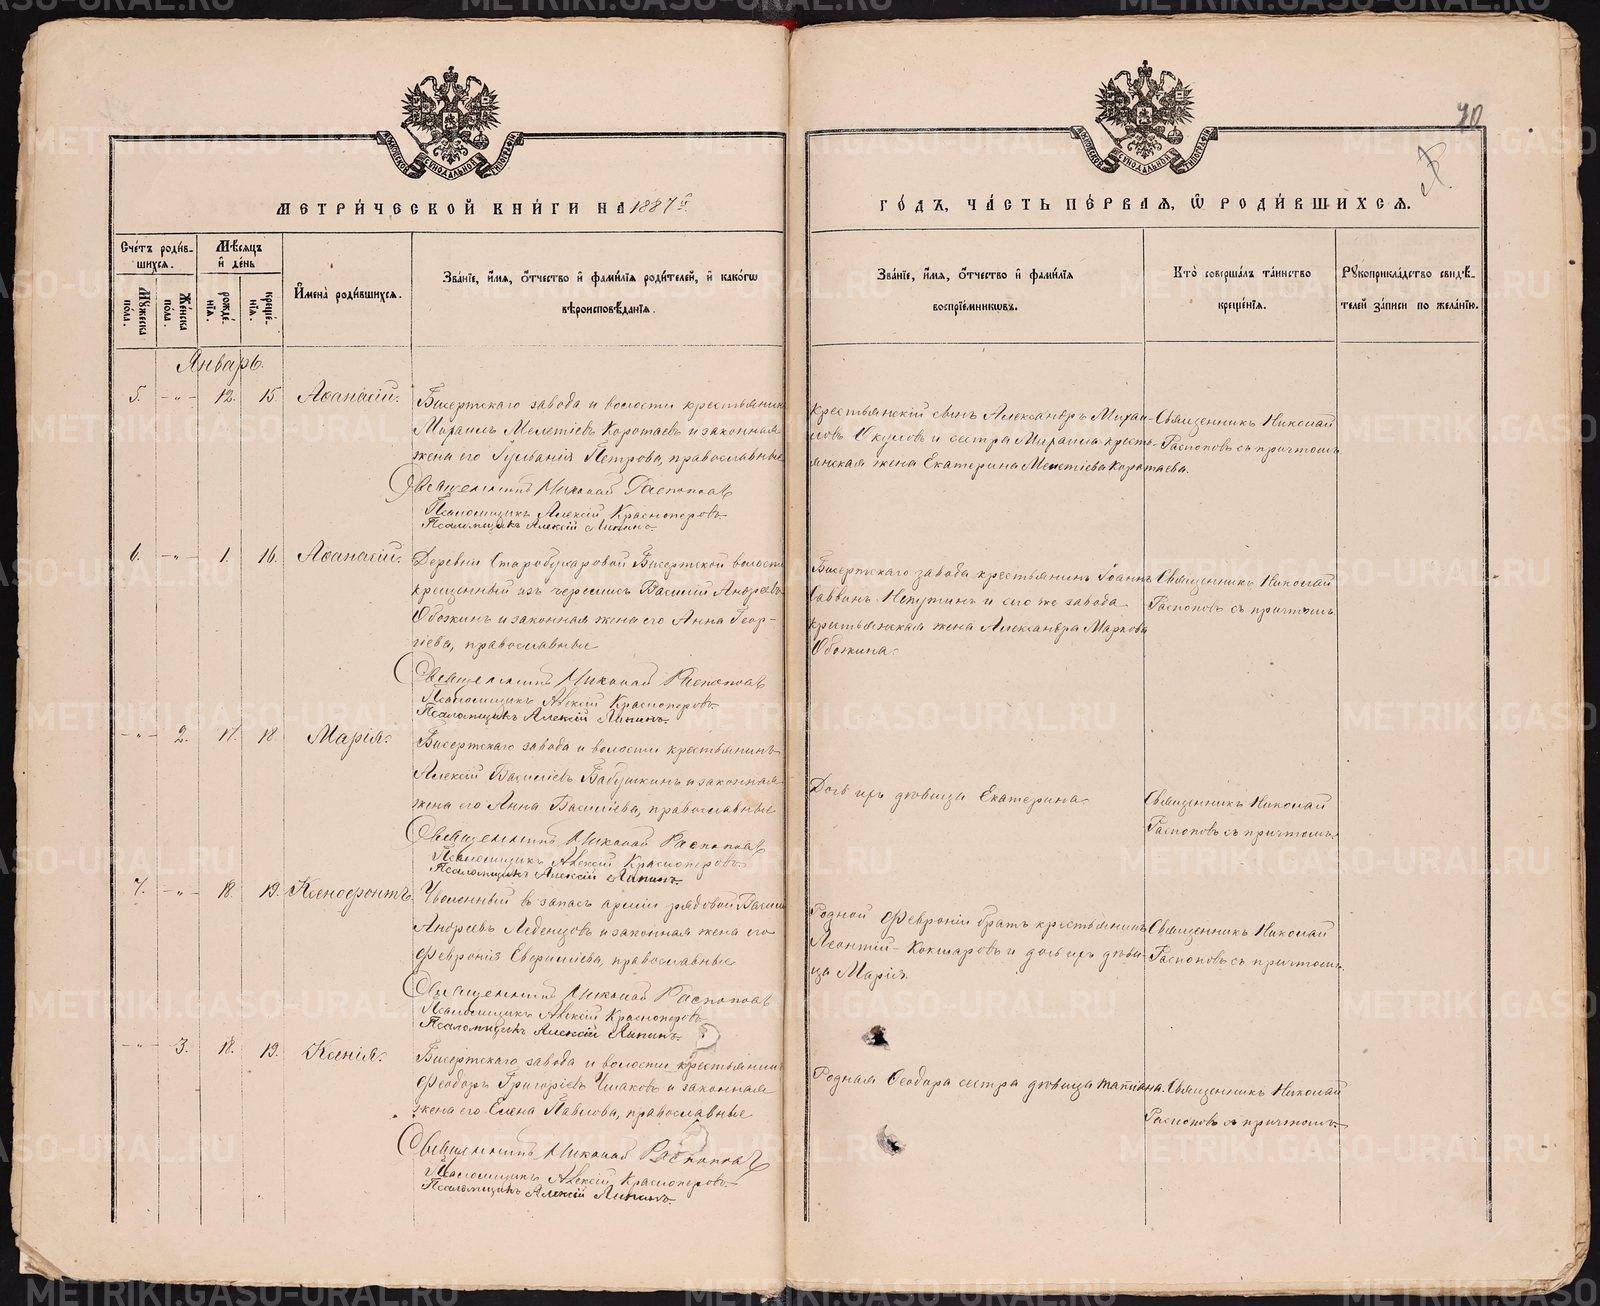 70
МЕТРИ́ЧЕСКОЙ КНИ́ГИ НА 1887 й
ГО́ДЪ, ЧА́СТЬ ПЕ́РВАЯ, Ѡ РОДИ́ВШИХСЯ.
Сче́тъ роди́в-
шихся.
Му́жеска по́ла.
Же́нска по́ла.
Мѣ́сяцъ
и де́нь
рожде́-
нїя.
креще́-
нїя.
И҆мена̀ роди́вшихся.
Зва́нїе, и҆́мя, ѻ҆́тчество и҆ фами́лїя роди́телей, и҆ како́гѡ
вѣроисповѣ́данїя.
Зва́нїе, и҆́мя, ѻ҆́тчество и҆ фами́лїя
воспрїе́мникѡвъ.
Кто̀ соверша́лъ та́инство
креще́нїя.
Рꙋкоприкла́дство свидѣ́-
телей за́писи по жела́нїю.
Январь.
5. -"- 12. 15. Аѳанасій.
Бисертскаго завода и волости крестьянинъ
Михаилъ Мелетіевъ Коротаевъ и законная
жена его Іуліанія Петрова, православные
Священникъ Николай Распоповъ
Псаломщикъ Алексій Красноперовъ
Псаломщикъ Алексій Липинъ.
Крестьянскій сынъ Александръ Михаи-
ловъ Окуловъ и сестра Михаила кресть-
янская жена Екатерина Мелетіева Коротаева.
Священникъ Николай
Распоповъ съ причтомъ.
6. -"- 1. 16. Аѳанасій.
Деревни Старобухаровой Бисертской волости
крещенный изъ черемисъ Василій Андреевъ
Обожинъ и законная жена его Анна Геор-
гіева, православные
Священникъ Николай Распоповъ
Псаломщикъ Алексій Красноперовъ
Псаломщикъ Алексій Липинъ.
Бисертскаго завода крестьянинъ Іоаннъ
Саввинъ Непутинъ и сего же завода
крестьянская жена Александра Маркова
Обожина.
Священникъ Николай
Распоповъ съ причтомъ.
-"- 2. 17. 18. Марія.
Бисертскаго завода и волости крестьянинъ
Алексій Василіевъ Бабушкинъ и законная
жена его Анна Василіева, православные
Священникъ Николай Распоповъ
Псаломщикъ Алексій Красноперовъ
Псаломщикъ Алексій Липинъ.
Дочь ихъ дѣвица Екатерина.
Священникъ Николай
Распоповъ съ причтомъ.
7. -"- 18. 19. Ксенофонтъ.
Уволенный въ запасъ арміи рядовой Василій
Андреевъ Леденцовъ и законная жена его
Февронія Евфиміева, православные
Священникъ Николай Распоповъ
Псаломщикъ Алексій Красноперовъ
Псаломщикъ Алексій Липинъ.
Родной Февроніи братъ крестьянинъ
Леонтій Кокшаровъ и дочь ихъ дѣви-
ца Марія.
Священникъ Николай
Распоповъ съ причтомъ.
-"- 3. 18. 19. Ксенія.
Бисертскаго завода и волости крестьянинъ
Феодоръ Григоріевъ Ушаковъ и законная
жена его Елена Павлова, православные
Священникъ Николай Распоповъ
Псаломщикъ Алексій Красноперовъ
Псаломщикъ Алексій Липинъ.
Родная Ѳеодора сестра дѣвица Татіана.
Священникъ Николай
Распоповъ съ причтомъ
METRIKI.GASO-URAL.RU